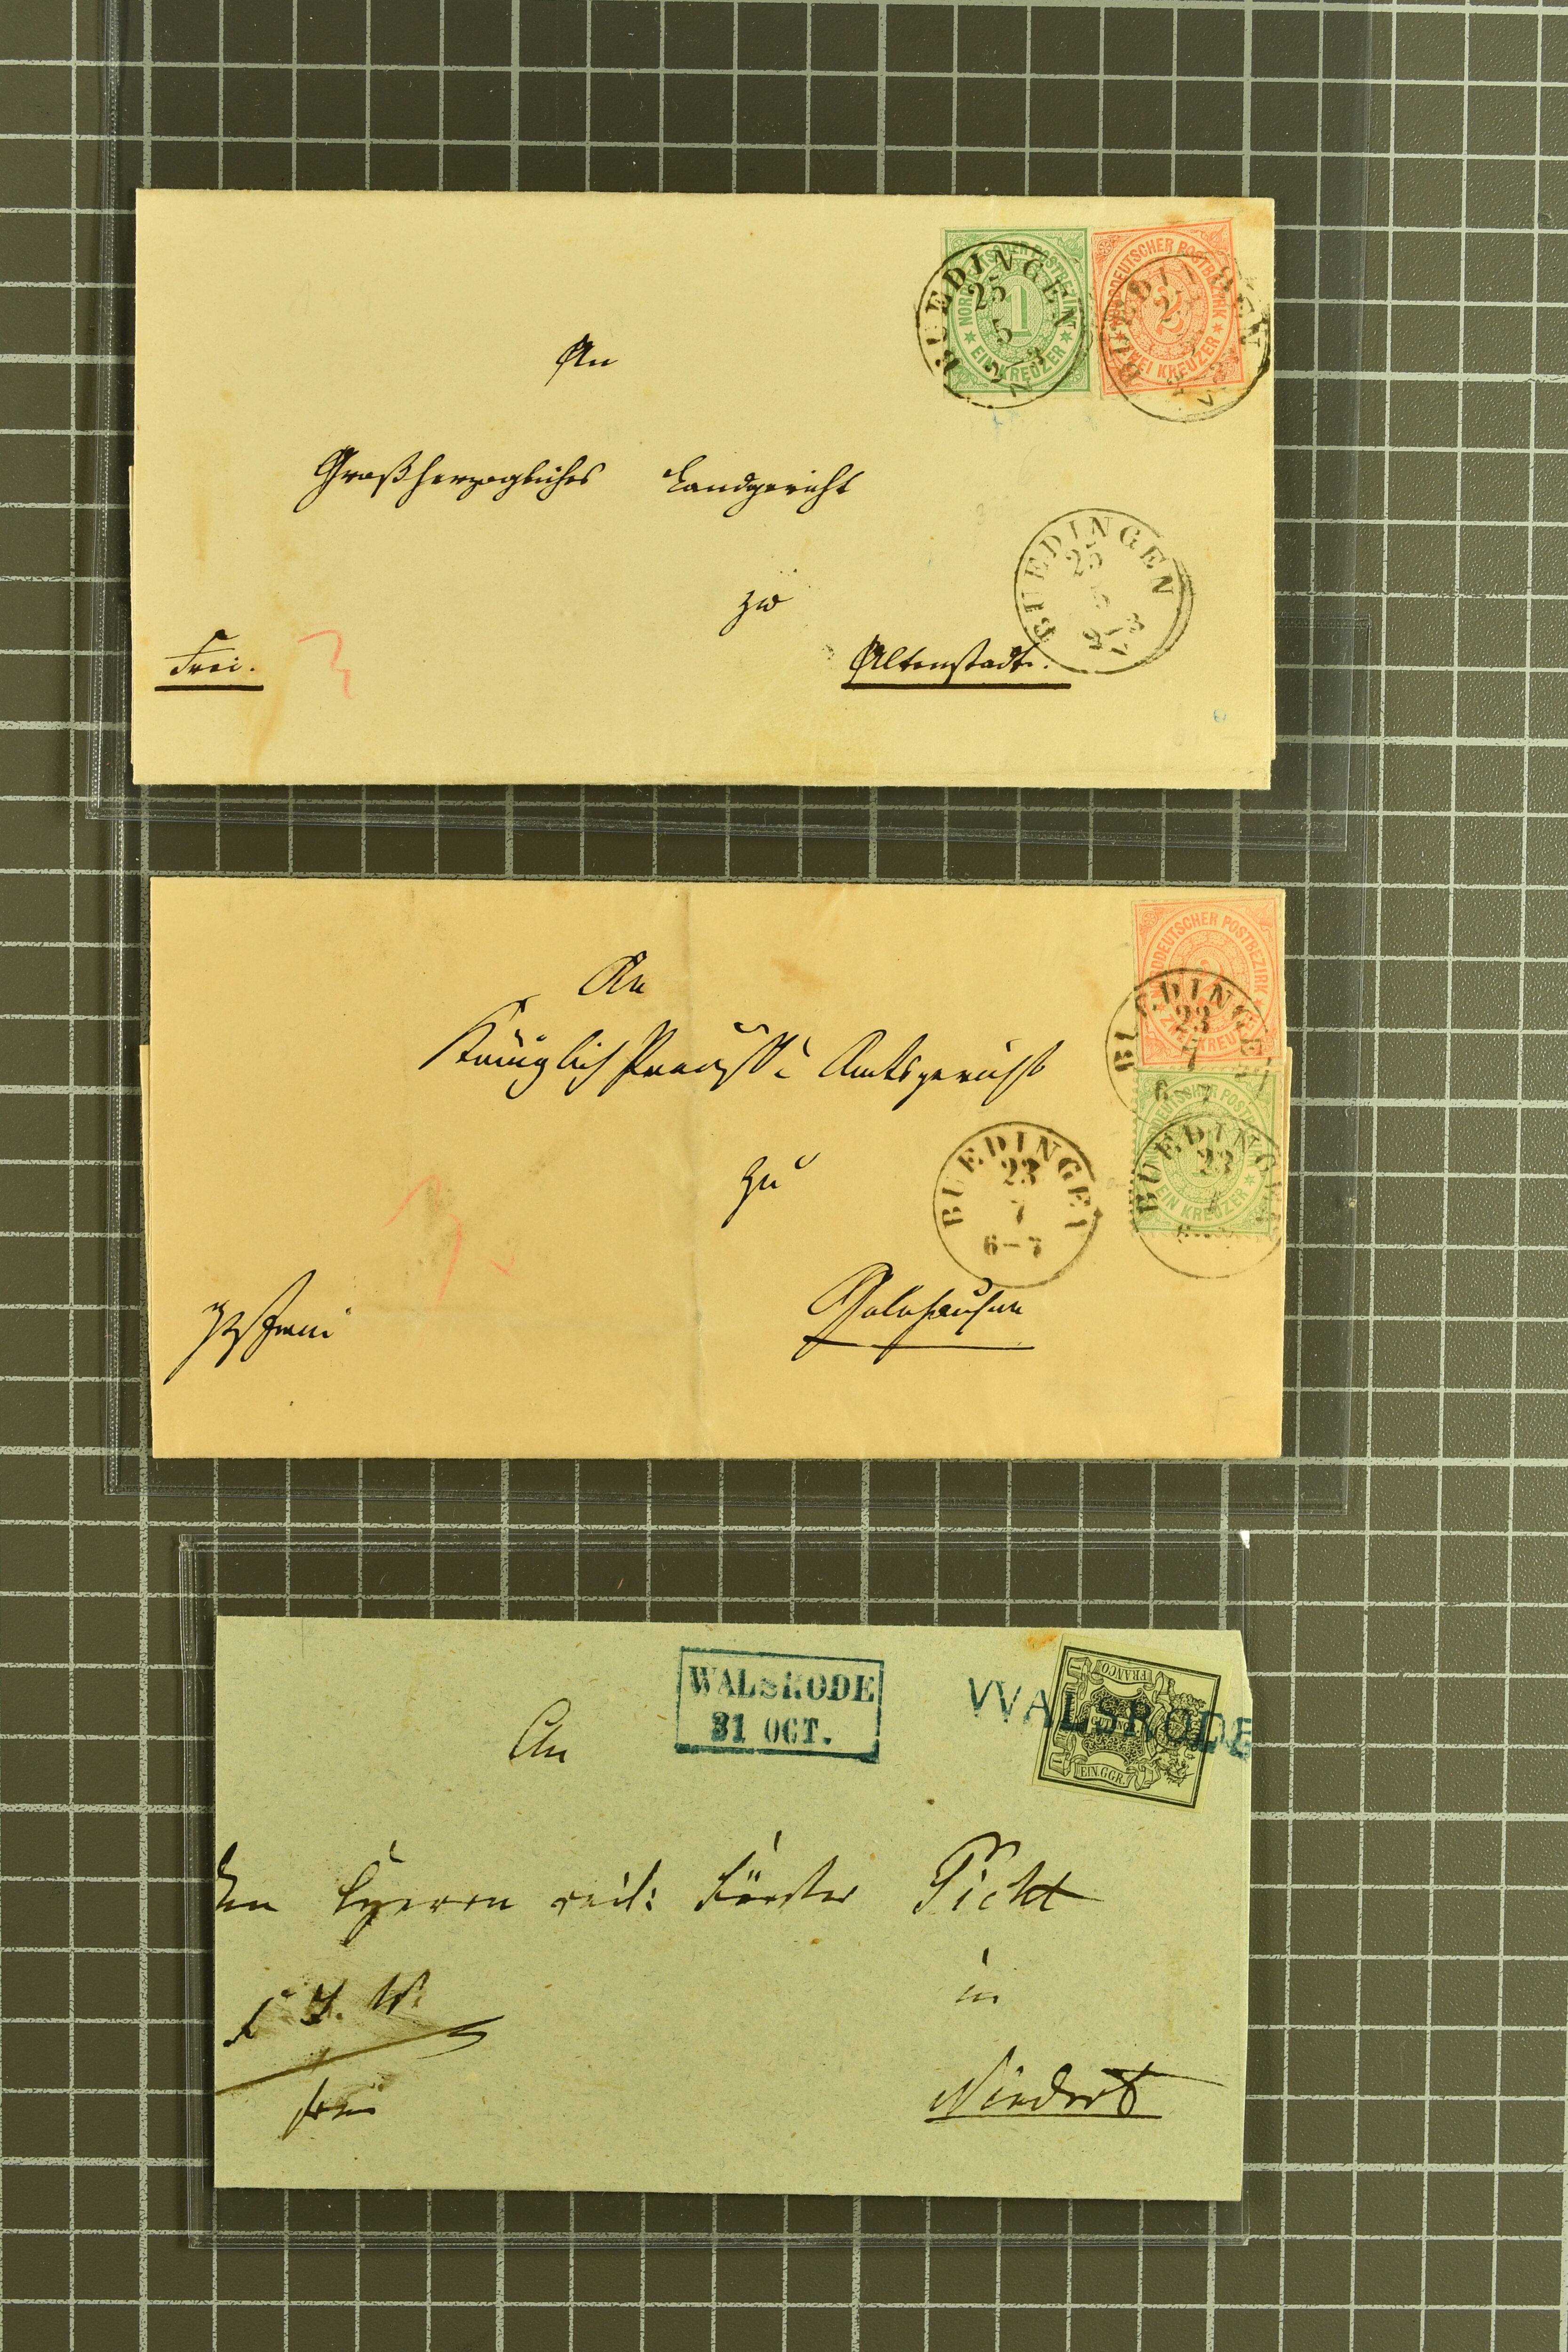 NORDDEUTSCHER POSTBEZIRK
1
EIN KREUZER
NORDDEUTSCHER POSTBEZIRK
2
ZWEI KREUZER
BUEDINGEN
25
5
2-3
BUEDINGEN
An
Großherzogliches Landgericht
zu
Altenstadt.
Frei.
3
BUEDINGEN
25
5
NORDDEUTSCHER POSTBEZIRK
ZWEI KREUZER
BUEDINGEN
23
7
6-7
NORDDEUTSCHER POSTBEZIRK
EIN KREUZER
BUEDINGEN
23
An
Königlich Preuß. Amtsgericht
zu
Gelnhausen
frei
3
BUEDINGEN
23
7
6-7
WALSRODE
31 OCT.
WALSRODE
FRANCO
EIN.GGR.
An
den Herrn reit: Förster Picht
in
frei